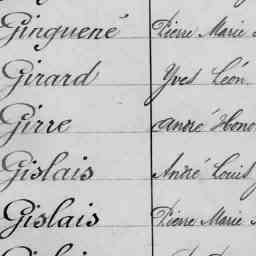 Ginguené Pierre Marie
Girard Yves Léon
Girre André Hono
Gislais André Louis
Gislais Pierre Marie